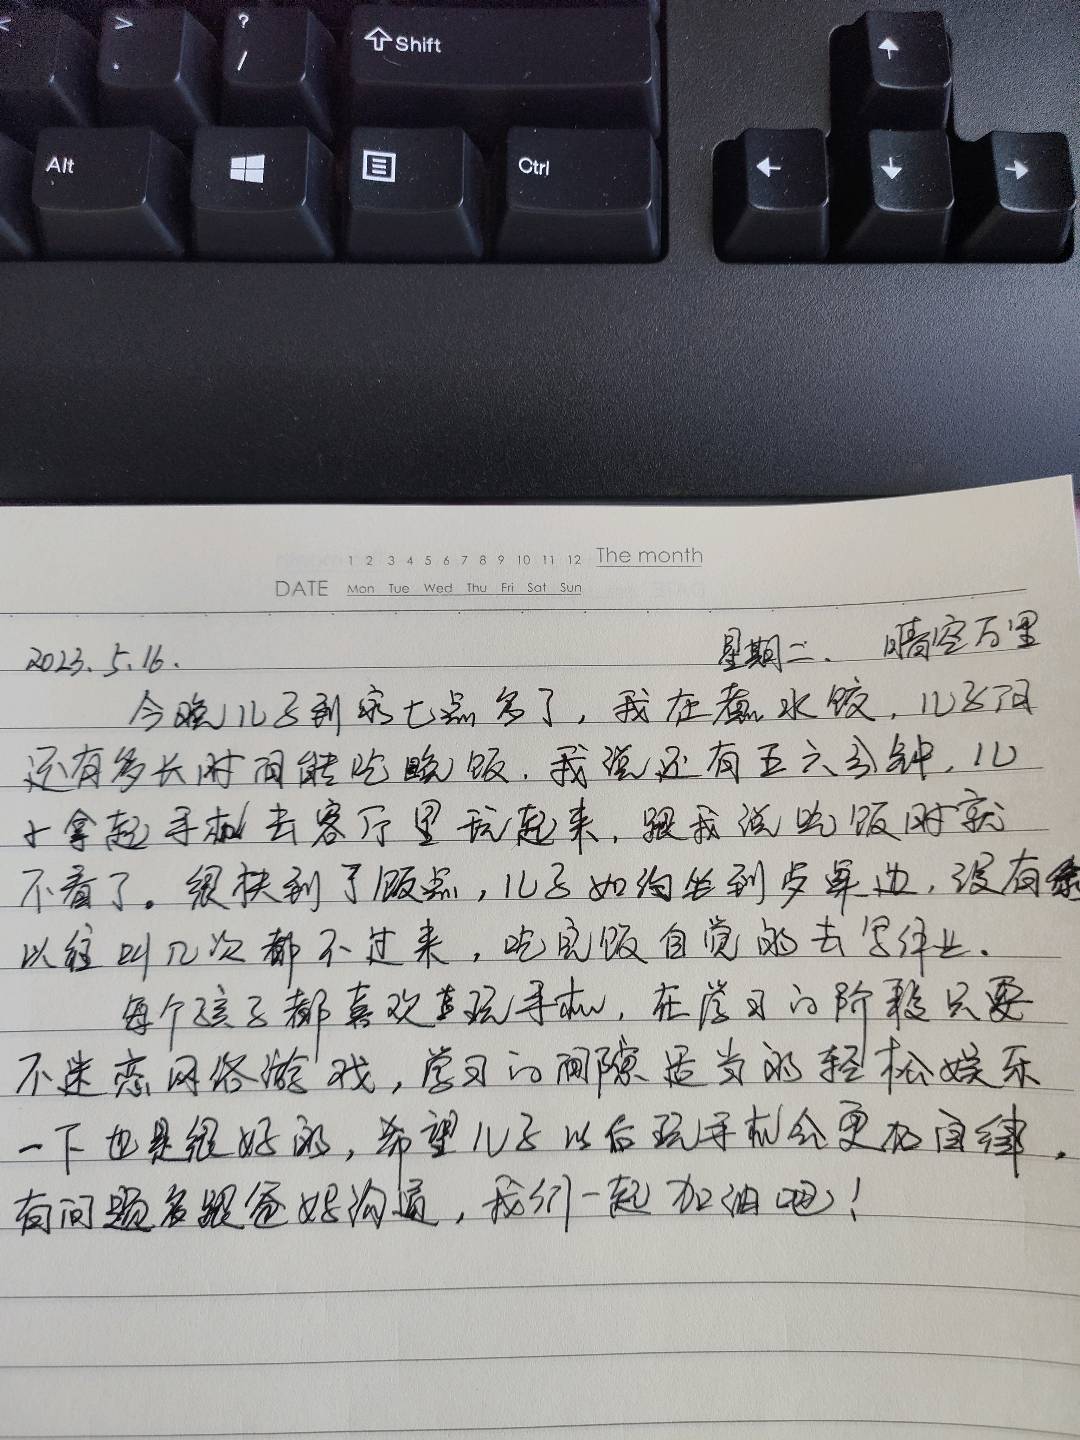 <
>
.
?
/
⇧Shift
Alt
Ctrl
↑
← ↓ →
1 2 3 4 5 6 7 8 9 10 11 12 The month
DATE Mon Tue Wed Thu Fri Sat Sun
2023.5.16. 星期二. 晴空万里
今晚儿子到家七点多了，我在煮水饺，儿子问
还有多长时间能吃晚饭，我说还有五六分钟，儿
子拿起手机去客厅里玩起来，跟我说吃饭时就
不看了。很快到了饭点，儿子如约坐到桌边，没有
以往叫几次都不过来，吃完饭自觉的去写作业。
每个孩子都喜欢玩手机，在学习的阶段只要
不迷恋网络游戏，学习的间隙适当的轻松娱乐
一下也是很好的，希望儿子以后玩手机会更加自律，
有问题多跟爸妈沟通，我们一起加油吧！